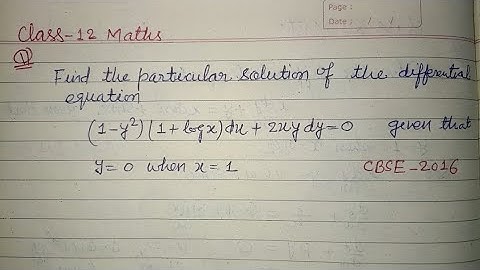 Page :
Date : / /
Class-12 Maths
Q1
Find the particular solution of the differential
equation
(1-y²)(1+logx)dx + 2xy dy=0 given that
y=0 when x=1 CBSE-2016